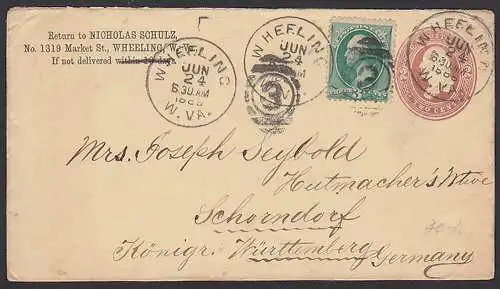 Return to NICHOLAS SCHULZ,
No. 1319 Market St., WHEELING, W. Va.
If not delivered within 10 days
WHEELING
JUN
24
630AM
1886
W.VA.
WHEELING
JUN
24
WHEELING
JUN
630AM
W.VA.
Mrs. Joseph Seybold
Hutmacher's Wtwe
Schorndorf
Königr. Württemberg
Germany